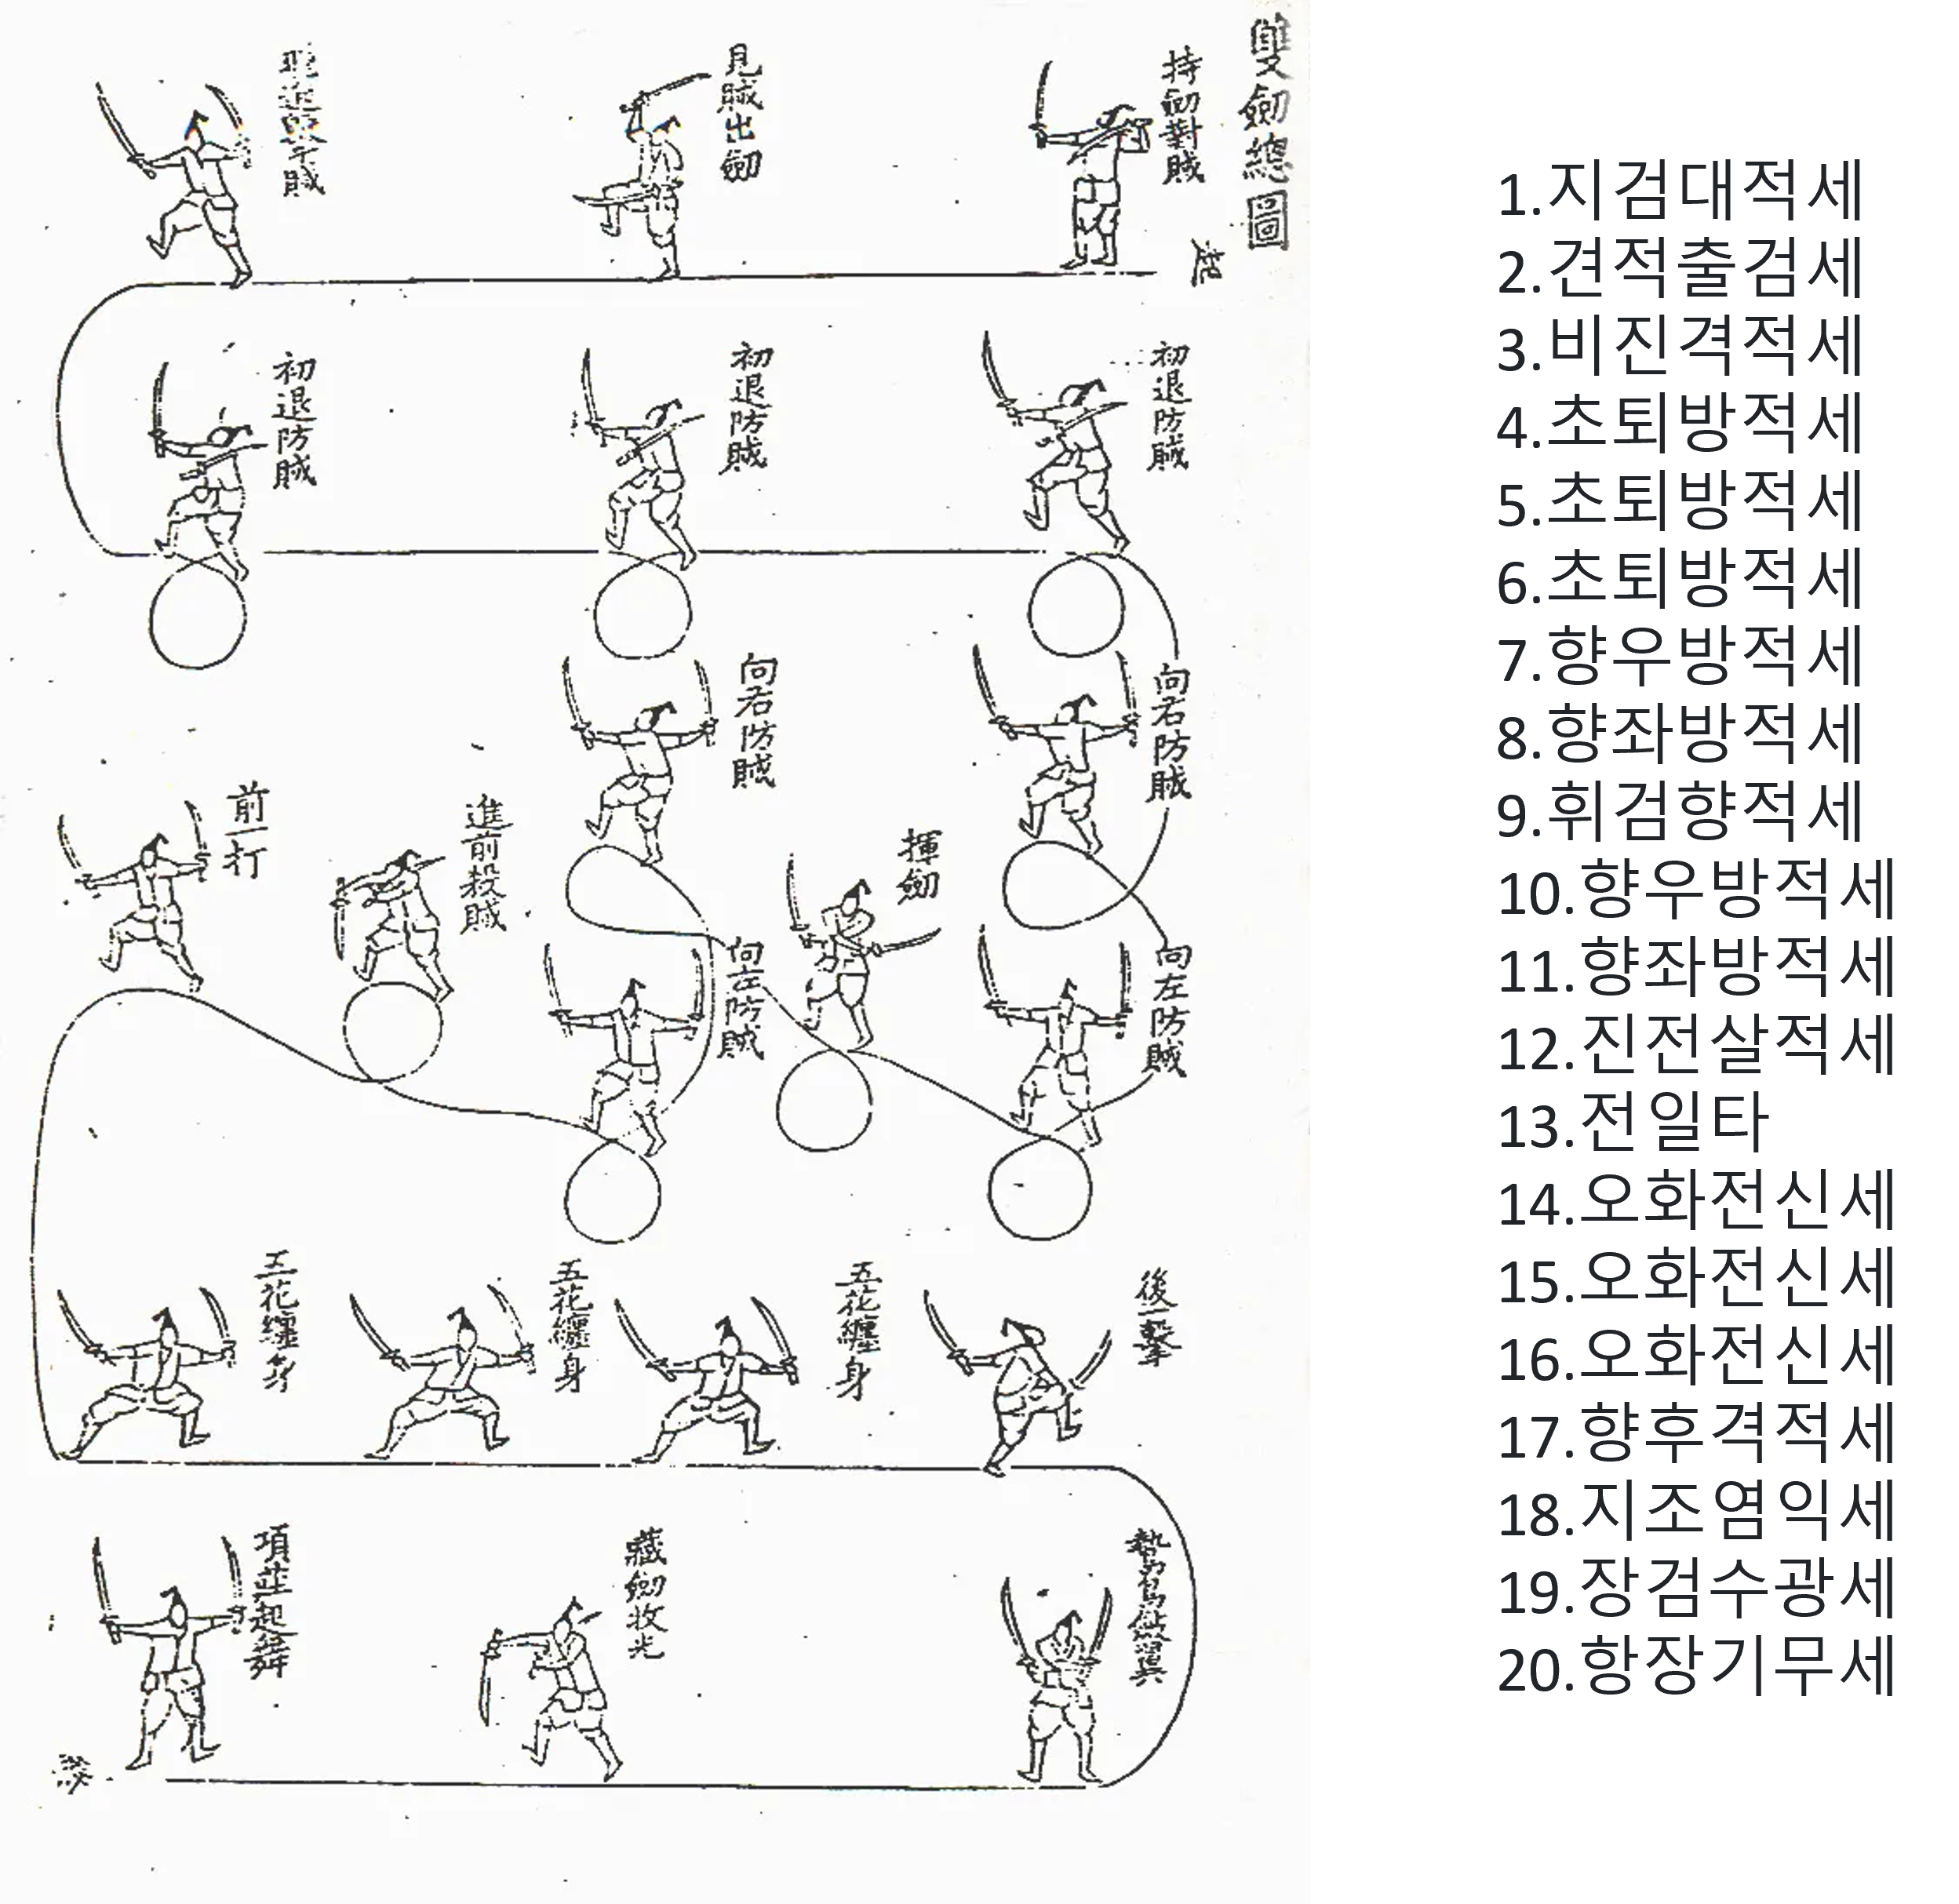 雙劍總圖
持劍對賊
見賊出劍
初退防賊
初退防賊
初退防賊
向右防賊
向左防賊
揮劍
向右防賊
向左防賊
進前殺賊
前一打
五花纏身
五花纏身
五花纏身
後一擊
藏劍收光
項莊起舞
1.지검대적세
2.견적출검세
3.비진격적세
4.초퇴방적세
5.초퇴방적세
6.초퇴방적세
7.향우방적세
8.향좌방적세
9.휘검향적세
10.향우방적세
11.향좌방적세
12.진전살적세
13.전일타
14.오화전신세
15.오화전신세
16.오화전신세
17.향후격적세
18.지조염익세
19.장검수광세
20.항장기무세